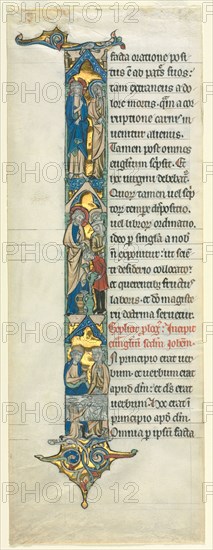 facta oratione posi
tus e ad patres suos:
tam extraneus a do
lore mortis. qm a cor
ruptione carnis in
uenitur alienus.
Tamen post omnes
eugliũ scripsit. Et
hoc uirgini debebat.
Quor tamen uel scrip
tor tempr dispositio.
uel libror ordinatio.
ideo p singla a nob
n exponitur: ut sci
di desiderio collocato.
et querentib; fructus
laboris: et do magiste
rij doctrina seruetur.
Explic plog. Incipit
euuglium scdm Iohem.
N principio erat uer
bum: et uerbum erat
apud dm: et ds erat
uerbum. Hoc erat i
principio apud dm.
Omnia p ipsum facta